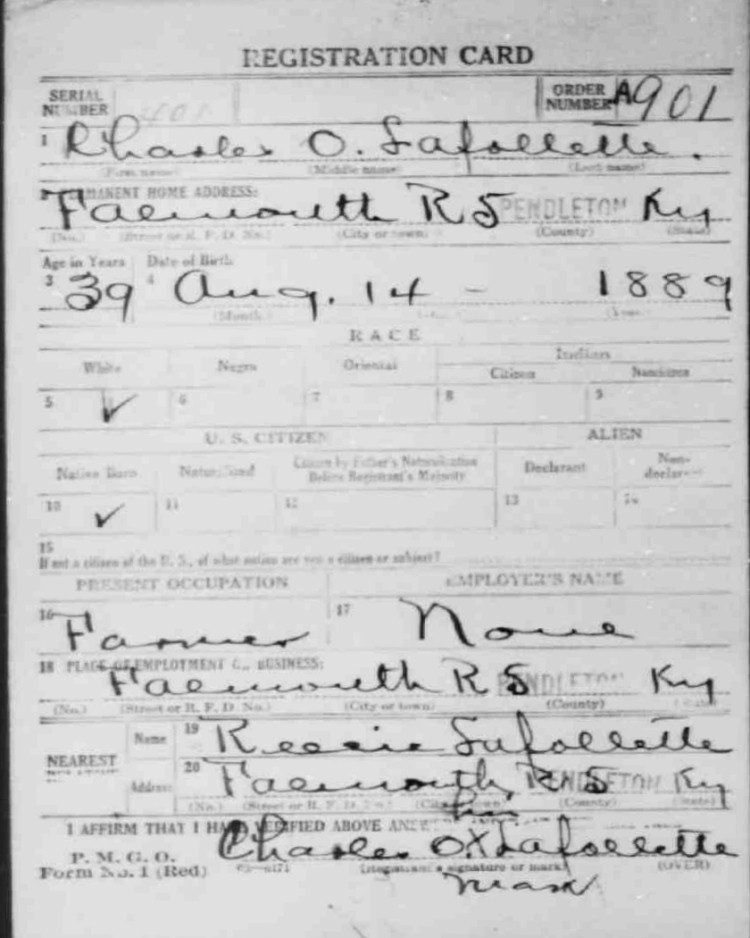 REGISTRATION CARD
SERIAL NUMBER 401 ORDER NUMBER A901
1 Charles O. Lafollette.
(First name) (Middle name) (Last name)
2 PERMANENT HOME ADDRESS:
Falmouth R 5 PENDLETON Ky
(No.) (Street or R. F. D. No.) (City or town) (County) (State)
Age in Years Date of Birth
3 39 4 Aug. 14 - 1889
(Month) (Year)
RACE
White Negro Oriental Indian
Citizen Noncitizen
5 ✓ 6 7 8 9
U. S. CITIZEN ALIEN
Native Born Naturalized Citizen by Father's Naturalization Before Registrant's Majority Declarant Non-declarant
10 ✓ 11 12 13 14
15
If not a citizen of the U. S., of what nation are you a citizen or subject?
PRESENT OCCUPATION EMPLOYER'S NAME
16 Farmer 17 None
18 PLACE OF EMPLOYMENT OR BUSINESS:
Falmouth R 5 PENDLETON Ky
(No.) (Street or R. F. D. No.) (City or town) (County) (State)
NEAREST Name 19 Lafollette
Address 20 Falmouth, R 5 PENDLETON Ky
(No.) (Street or R. F. D. No.) (City or town) (County) (State)
I AFFIRM THAT I HAVE VERIFIED ABOVE
his
Charles O X Lafollette
P. M. G. O.
Form No. 1 (Red) (Registrant's signature or mark) (OVER)
mark